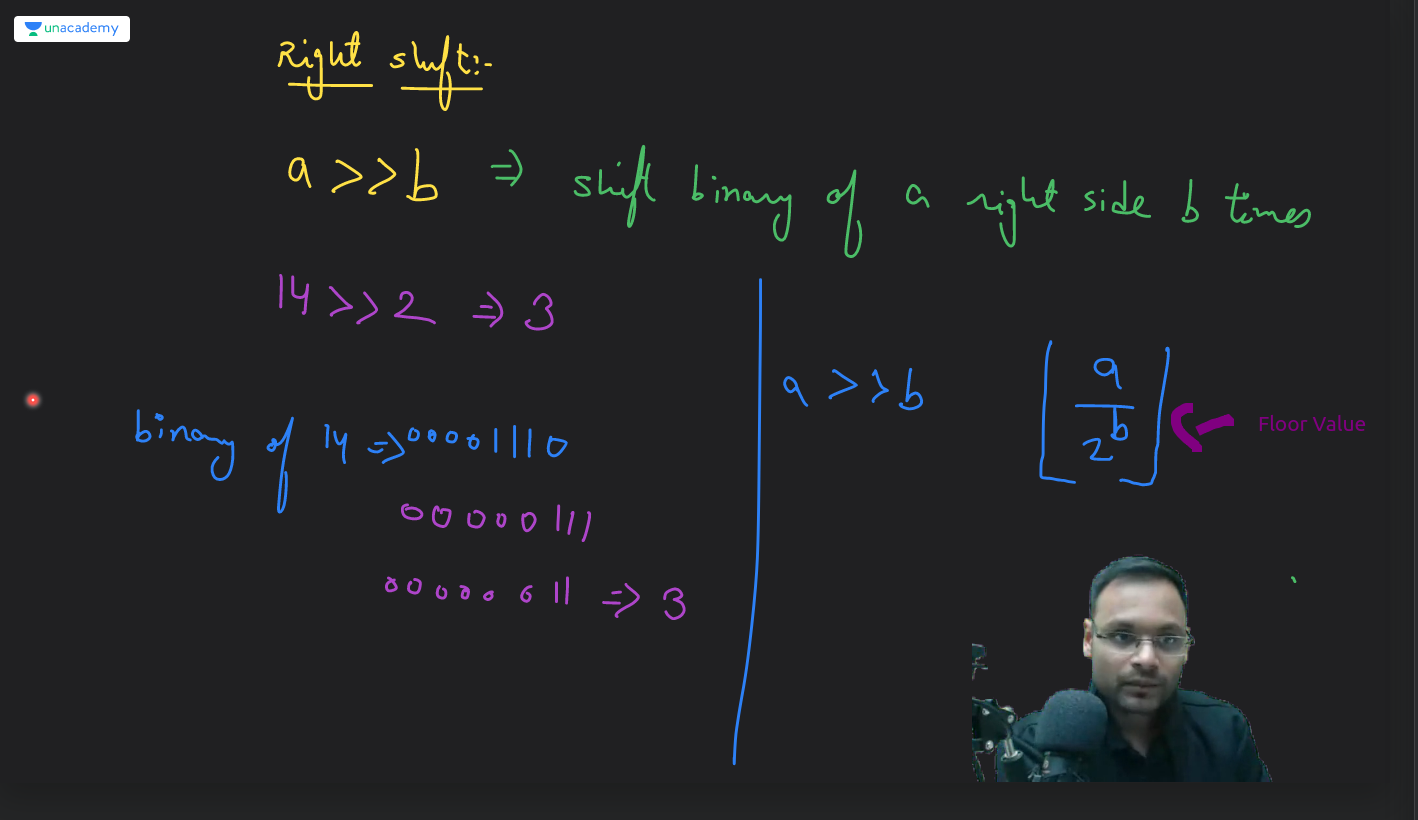 unacademy
Right shift:-
a >> b ⇒ shift binary of a right side b times
14 >> 2 ⇒ 3
binary of 14 ⇒ 00001110
00000111
00000011 ⇒ 3
a >> b ⌊a/2^b⌋ Floor Value